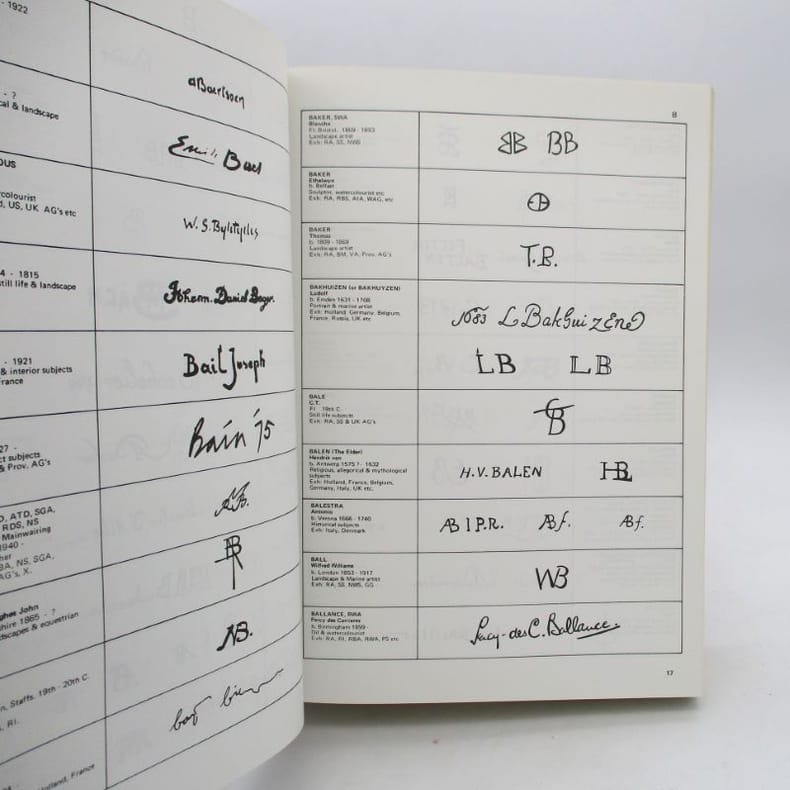 - 1922
- ?
cal & landscape
OUS
colourist
d, US, UK AG's etc
4 - 1815
still life & landscape
- 1921
& interior subjects
France
27 -
ct subjects
& Prov. AG's
D, ATD, SGA,
RDS, NS
Mainwairing
1940 -
her
BA, NS, SGA,
AG's, X.
ghes John
hire 1865 - ?
dscapes & equestrian
n, Staffs. 19th - 20th C.
, RI.
Holland, France
aBaertsoen
Emile Baes
W.S.Bylityllės
Johann. Daniel Bager.
Bail Joseph
Bain '75
AB.
AB
NB.
B
BAKER, SWA
Blanche
Fl. Bristol. 1869 - 1893
Landscape artist
Exh: RA, SS, NWS
BB BB
BAKER
Ethelwyn
b. Belfast
Sculptor, watercolourist etc
Exh: RA, RBS, AIA, WAG, etc
EB
BAKER
Thomas
b. 1809 - 1869
Landscape artist
Exh: RA, BM, VA, Prov. AG's
T.B.
BAKHUIZEN (or BAKHUYZEN)
Ludolf
b. Emden 1631 - 1708
Portrait & marine artist
Exh: Holland, Germany, Belgium,
France, Russia, UK etc
1683 L BakhuizEn
LB LB
BALE
C.T.
Fl. 19th C.
Still life subjects
Exh: RA, SS & UK AG's
CTB
BALEN (The Elder)
Hendrik van
b. Antwerp 1575 ? - 1632
Religious, allegorical & mythological
subjects
Exh: Holland, France, Belgium,
Germany, Italy, UK etc.
H.V.BALEN HBL
BALESTRA
Antonio
b. Verona 1666 - 1740
Historical subjects
Exh: Italy, Denmark
AB I P.R. ABf. ABf.
BALL
Wilfred Williams
b. London 1853 - 1917
Landscape & Marine artist
Exh: RA, SS, NWS, GG
WB
BALLANCE, RWA
Percy des Carrieres
b. Birmingham 1899 -
Oil & watercolourist
Exh: RA, RI, RBA, RWA, PS etc
Percy-des C. Ballance.
17